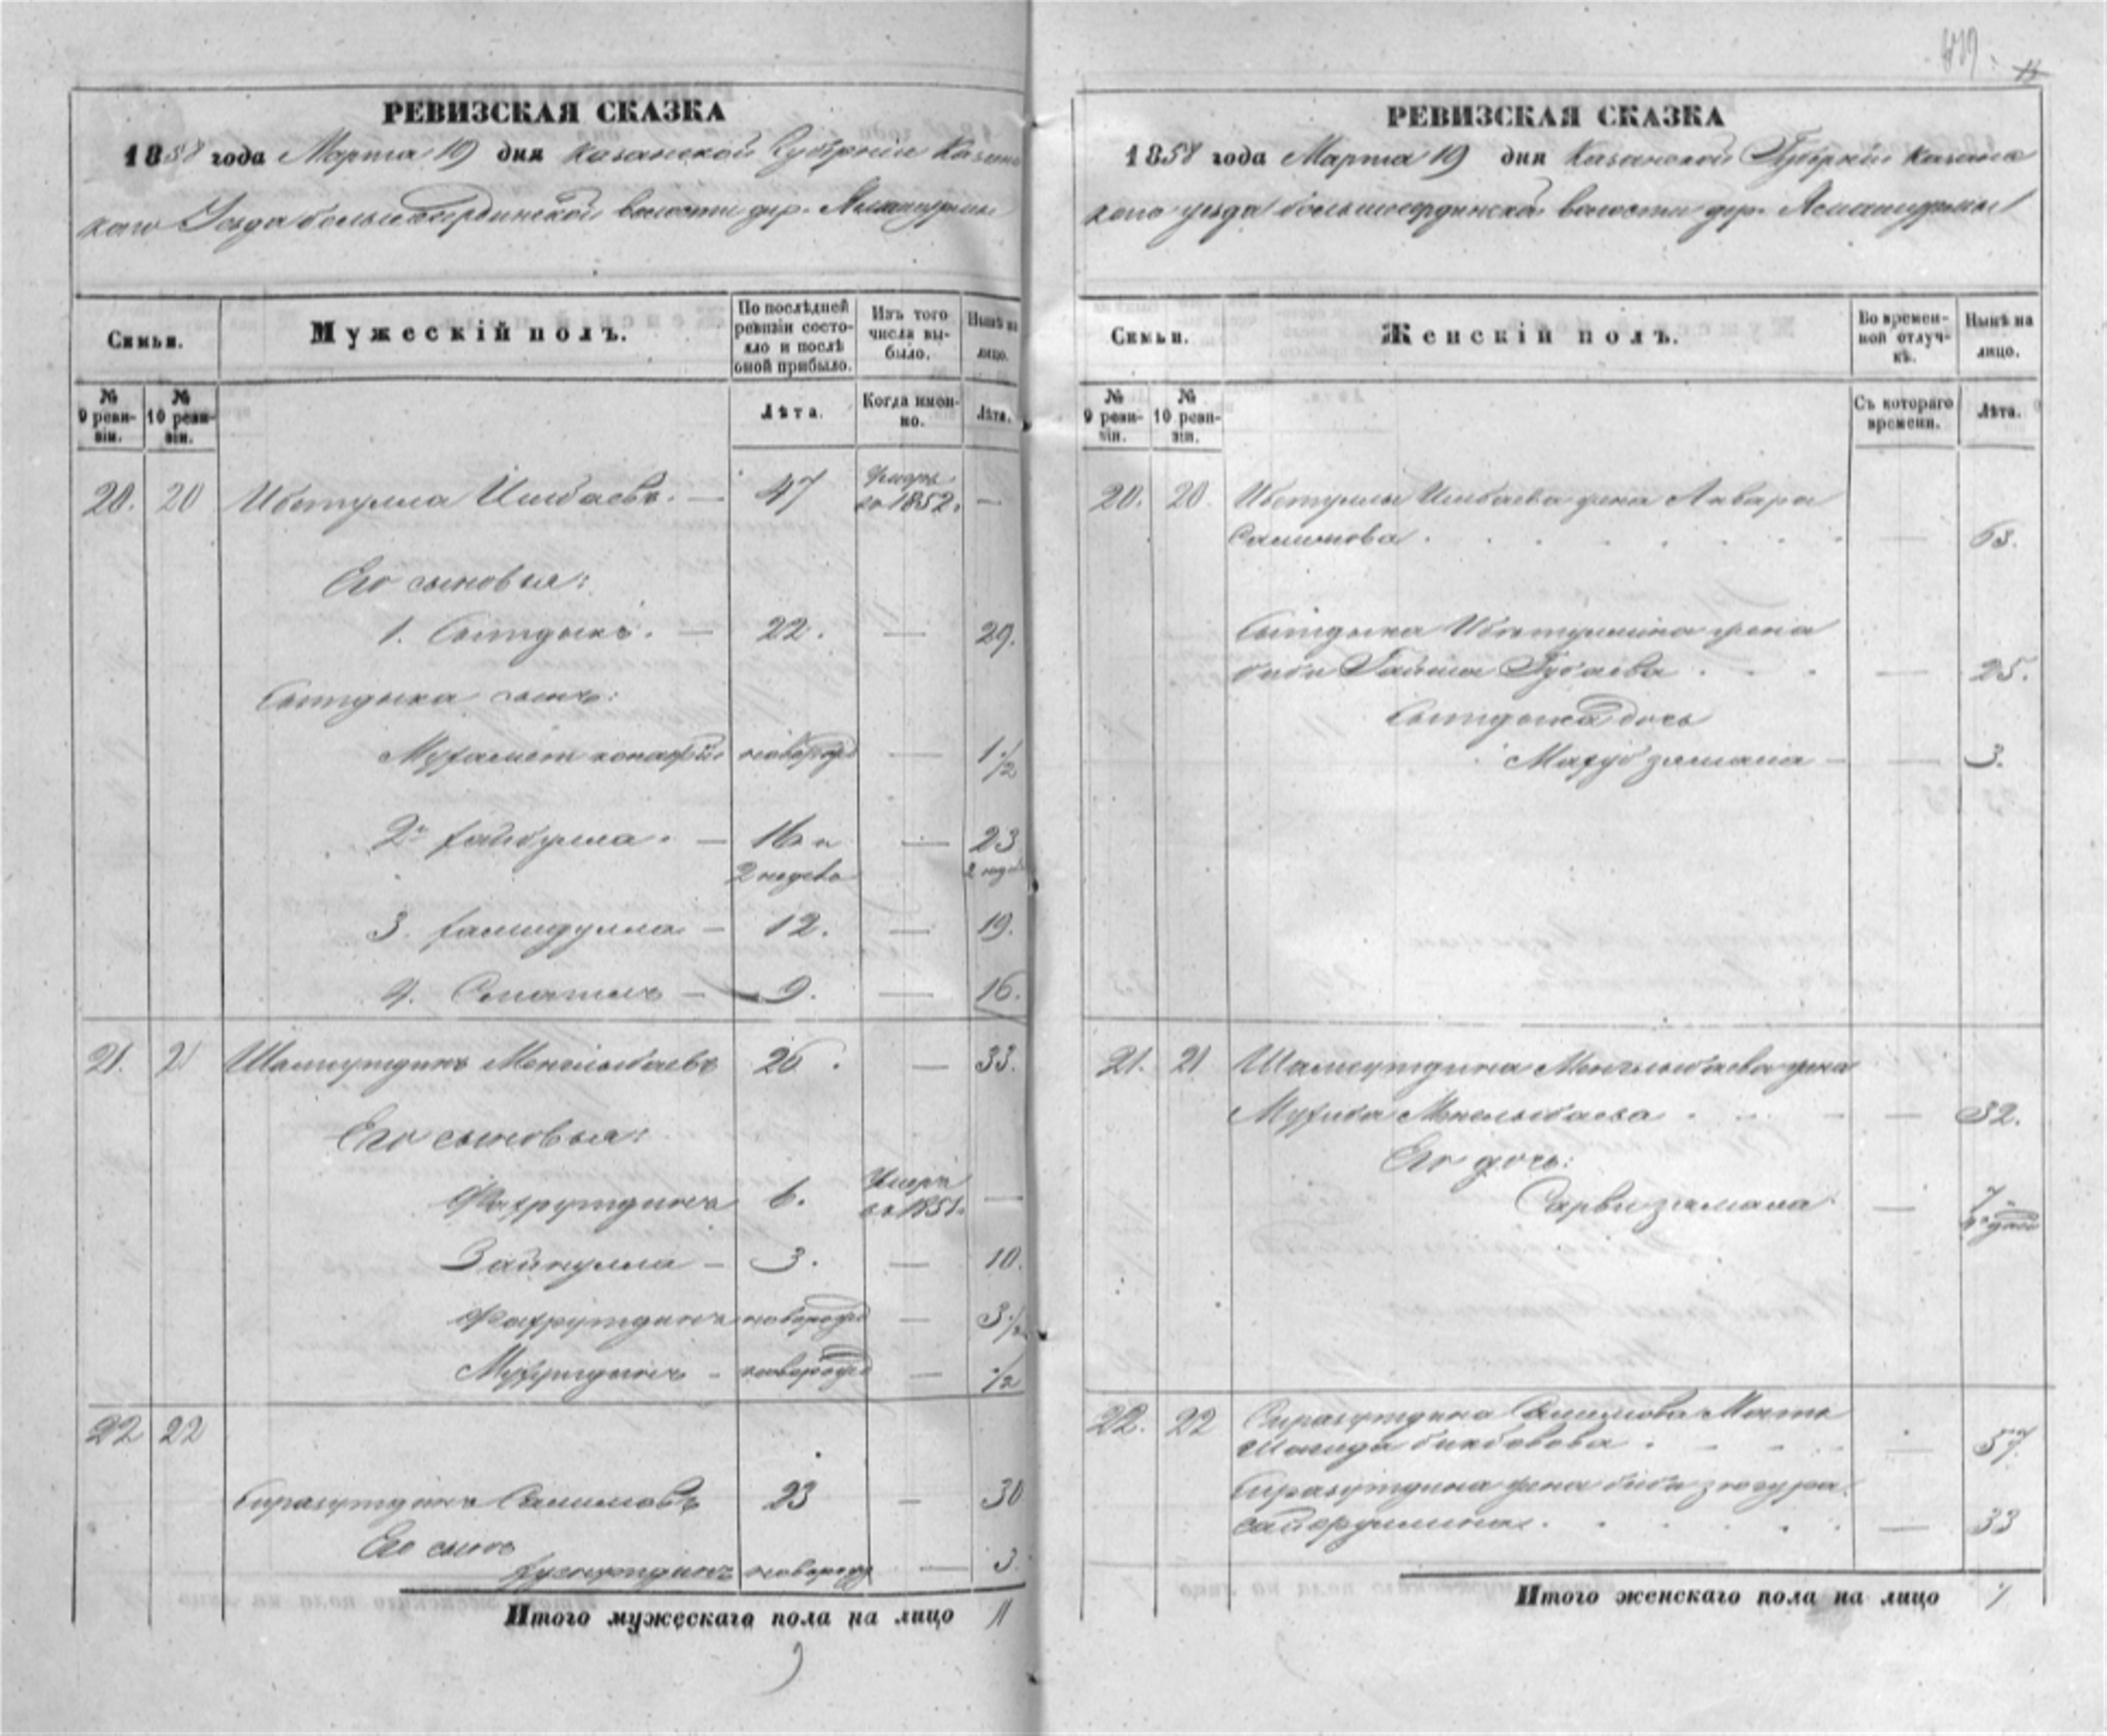 РЕВИЗСКАЯ СКАЗКА
1858 года Марта 19 дня Казанской Губерніи Казанс
каго Уезда большесердинской волости дер.
Семьи.
Мужескій полъ.
По послѣдней ревизіи состо-
яло и послѣ
оной прибыло.
Изъ того
числа вы-
было.
Нынѣ на
лицо.
№
9 реви-
зіи.
№
10 реви-
зіи.
Лѣта.
Когда имен-
но.
Лѣта.
20. 20 Ибетулла Ишбаевъ. — 47 умеръ
въ 1852. —
Его сыновья:
1. Ситдыкъ. — 22. — 29.
Ситдыка сынъ:
Мухамет новорожд — 1 1/2
2й Хайбулла. — 16 и — 23
2 недѣли
3. Хамидулла — 12. — 19.
4. Смагилъ — 9. — 16.
21. 21 Шамсутдинъ Менглыбаевъ 26. — 33.
Его сыновья:
Фахрутдинъ 6. Умеръ
въ 1851. —
Зайнулла — 3. — 10.
Фахрутдинъ новорожд — 3 1/2
новорожд — 1/2
22 22
Сиразутдинъ Салимовъ 23 — 30
Его сынъ
Хуснутдинъ новорожд — 3.
Итого мужескаго пола на лицо 11
РЕВИЗСКАЯ СКАЗКА
1858 года Марта 19 дня Казанской Губерніи Казанс
каго уезда большесердинской волости дер.
Семьи.
Женскій полъ.
Во времен-
ной отлуч-
кѣ.
Нынѣ на
лицо.
№
9 реви-
зіи.
№
10 реви-
зіи.
Съ котораго
времени.
Лѣта.
20. 20. Ибетуллы Ишбаева жена Анвара
Салимова . — 63.
Ситдыка Ибетуллина жена
биби Гайша Губаева . — 25.
Ситдыка дочь
Махубзямала — — 3.
21. 21 Шамсутдина Менглыбаева жена
Мухиба Менглыбаева . — 32.
Его дочь:
Сарвизямала — 7
22. 22 Сиразутдина Салимова Мать
Шагида . — 57.
Сиразутдина жена биби зюгура
. — 33
Итого женскаго пола на лицо 7